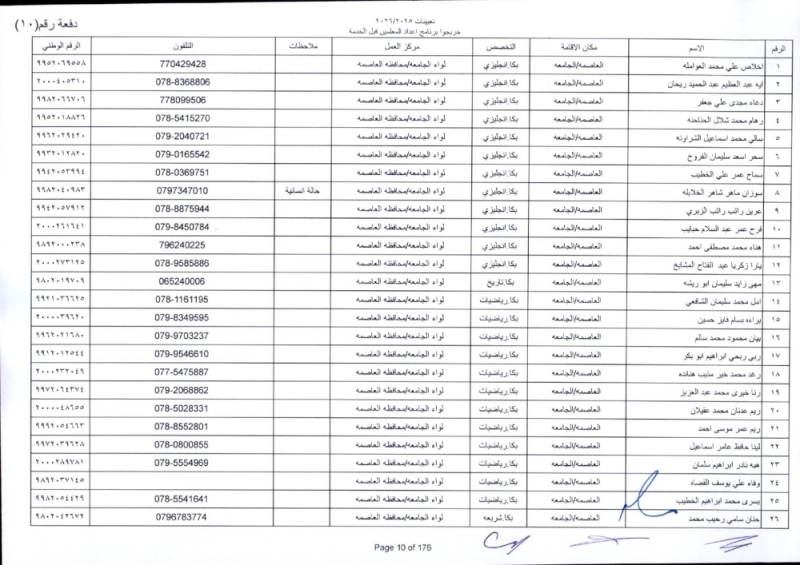 دفعة رقم (١٠)
تعيينات ٢٠٢٦/٢٠٢٥
خريجوا برنامج اعداد المعلمين قبل الخدمة
الرقم الاسم مكان الاقامة التخصص مركز العمل ملاحظات التلفون الرقم الوطني
١ اخلاص علي محمد العوامله العاصمه/الجامعه بكا.إنجليزي لواء الجامعه/محافظه العاصمه 770429428 ٩٩٥٢٠٦٩٥٥٨
٢ ايه عبد العظيم عبد الحميد ريحان العاصمه/الجامعه بكا.إنجليزي لواء الجامعه/محافظه العاصمه 078-8368806 ٢٠٠٠٤٠٥٣١٠
٣ دعاء مجدى علي جعفر العاصمه/الجامعه بكا.إنجليزي لواء الجامعه/محافظه العاصمه 778099506 ٩٩٨٢٠٦٦٧٠٦
٤ رهام محمد شلال الحناحنه العاصمه/الجامعه بكا.إنجليزي لواء الجامعه/محافظه العاصمه 078-5415270 ٩٩٥٢٠١٨٨٢٦
٥ سالي محمد اسماعيل الشراونه العاصمه/الجامعه بكا.إنجليزي لواء الجامعه/محافظه العاصمه 079-2040721 ٩٩٦٢٠٢٩٤٢٠
٦ سحر اسعد سليمان الفروخ العاصمه/الجامعه بكا.إنجليزي لواء الجامعه/محافظه العاصمه 079-0165542 ٩٩٣٢٠١٢٨٢٠
٧ سماح عمر علي الخطيب العاصمه/الجامعه بكا.إنجليزي لواء الجامعه/محافظه العاصمه 078-0369751 ٩٩٤٢٠٥٣٩٩٤
٨ سوزان ماهر شاهر الخلايله العاصمه/الجامعه بكا.إنجليزي لواء الجامعه/محافظه العاصمه حالة انسانية 0797347010 ٩٩٨٢٠٤٠٩٨٣
٩ عرين راتب راتب الزبري العاصمه/الجامعه بكا.إنجليزي لواء الجامعه/محافظه العاصمه 078-8875944 ٩٩٤٢٠٥٧٩١٢
١٠ فرح عمر عبد السلام حبايب العاصمه/الجامعه بكا.إنجليزي لواء الجامعه/محافظه العاصمه 079-8450784 ٢٠٠٠٢٦١٦٤١
١١ هناء محمد مصطفى احمد العاصمه/الجامعه بكا.إنجليزي لواء الجامعه/محافظه العاصمه 796240225 ٩٨٩٢٠٠٠٢٣٨
١٢ يارا زكريا عبد الفتاح المشايخ العاصمه/الجامعه بكا.إنجليزي لواء الجامعه/محافظه العاصمه 078-9585886 ٢٠٠٠٢٧٣١٢٥
١٣ مهى زايد سليمان ابو ريشه العاصمه/الجامعه بكا.تاريخ لواء الجامعه/محافظه العاصمه 065240006 ٩٨٠٢٠١٩٧٠٩
١٤ امل محمد سليمان الشافعي العاصمه/الجامعه بكا.رياضيات لواء الجامعه/محافظه العاصمه 078-1161195 ٩٩٢١٠٣٦٦٢٥
١٥ براءه بسام فايز حسين العاصمه/الجامعه بكا.رياضيات لواء الجامعه/محافظه العاصمه 079-8349595 ٢٠٠٠٠٣٩٦٢٠
١٦ بيان محمود محمد سالم العاصمه/الجامعه بكا.رياضيات لواء الجامعه/محافظه العاصمه 079-9703237 ٩٩٦٢٠٢١٦٨٠
١٧ ربى ربحي ابراهيم ابو بكر العاصمه/الجامعه بكا.رياضيات لواء الجامعه/محافظه العاصمه 079-9546610 ٩٩١٢٠١٢٥٤٤
١٨ رغد محمد خير مذيب هنانده العاصمه/الجامعه بكا.رياضيات لواء الجامعه/محافظه العاصمه 077-5475887 ٢٠٠٠٢٣٢٠٤٩
١٩ رنا خيرى محمد عبد العزيز العاصمه/الجامعه بكا.رياضيات لواء الجامعه/محافظه العاصمه 079-2068862 ٩٩٧٢٠٦٤٣٧٤
٢٠ ريم عدنان محمد عقيلان العاصمه/الجامعه بكا.رياضيات لواء الجامعه/محافظه العاصمه 078-5028331 ٢٠٠٠٠٤٨٦٥٥
٢١ ريم عمر موسى احمد العاصمه/الجامعه بكا.رياضيات لواء الجامعه/محافظه العاصمه 078-8552801 ٩٩٩٢٠٥٤٦٦٣
٢٢ لينا حافظ عامر اسماعيل العاصمه/الجامعه بكا.رياضيات لواء الجامعه/محافظه العاصمه 078-0800855 ٩٩٧٢٠٣٩٦٢٨
٢٣ هبه نادر ابراهيم سلمان العاصمه/الجامعه بكا.رياضيات لواء الجامعه/محافظه العاصمه 079-5554969 ٢٠٠٠٢٨٩٧٨١
٢٤ وفاء علي يوسف القضاه العاصمه/الجامعه بكا.رياضيات لواء الجامعه/محافظه العاصمه ٩٨٩٢٠٣٧١٤٥
٢٥ يسرى محمد ابراهيم الخطيب العاصمه/الجامعه بكا.رياضيات لواء الجامعه/محافظه العاصمه 078-5541641 ٩٩٨٢٠٥٤٤٢٩
٢٦ حنان سامي رحيب محمد العاصمه/الجامعه بكا.شريعه لواء الجامعه/محافظه العاصمه 0796783774 ٩٨٠٢٠٤٢٦٧٢
Page 10 of 176